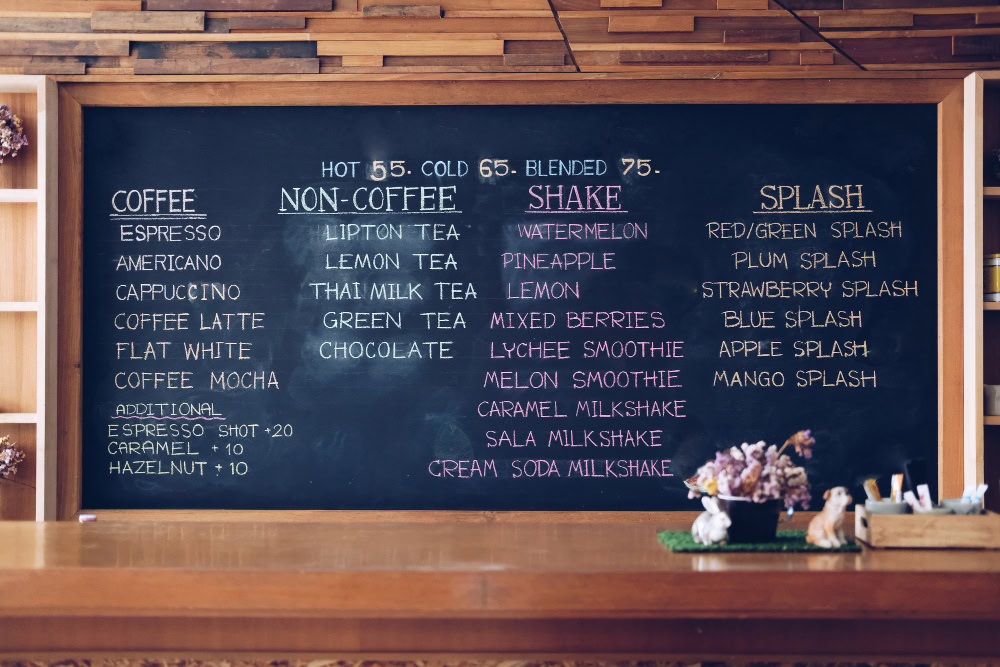 HOT 55. COLD 65. BLENDED 75.
COFFEE
ESPRESSO
AMERICANO
CAPPUCCINO
COFFEE LATTE
FLAT WHITE
COFFEE MOCHA
ADDITIONAL
ESPRESSO SHOT +20
CARAMEL +10
HAZELNUT +10
NON-COFFEE
LIPTON TEA
LEMON TEA
THAI MILK TEA
GREEN TEA
CHOCOLATE
SHAKE
WATERMELON
PINEAPPLE
LEMON
MIXED BERRIES
LYCHEE SMOOTHIE
MELON SMOOTHIE
CARAMEL MILKSHAKE
SALA MILKSHAKE
CREAM SODA MILKSHAKE
SPLASH
RED/GREEN SPLASH
PLUM SPLASH
STRAWBERRY SPLASH
BLUE SPLASH
APPLE SPLASH
MANGO SPLASH